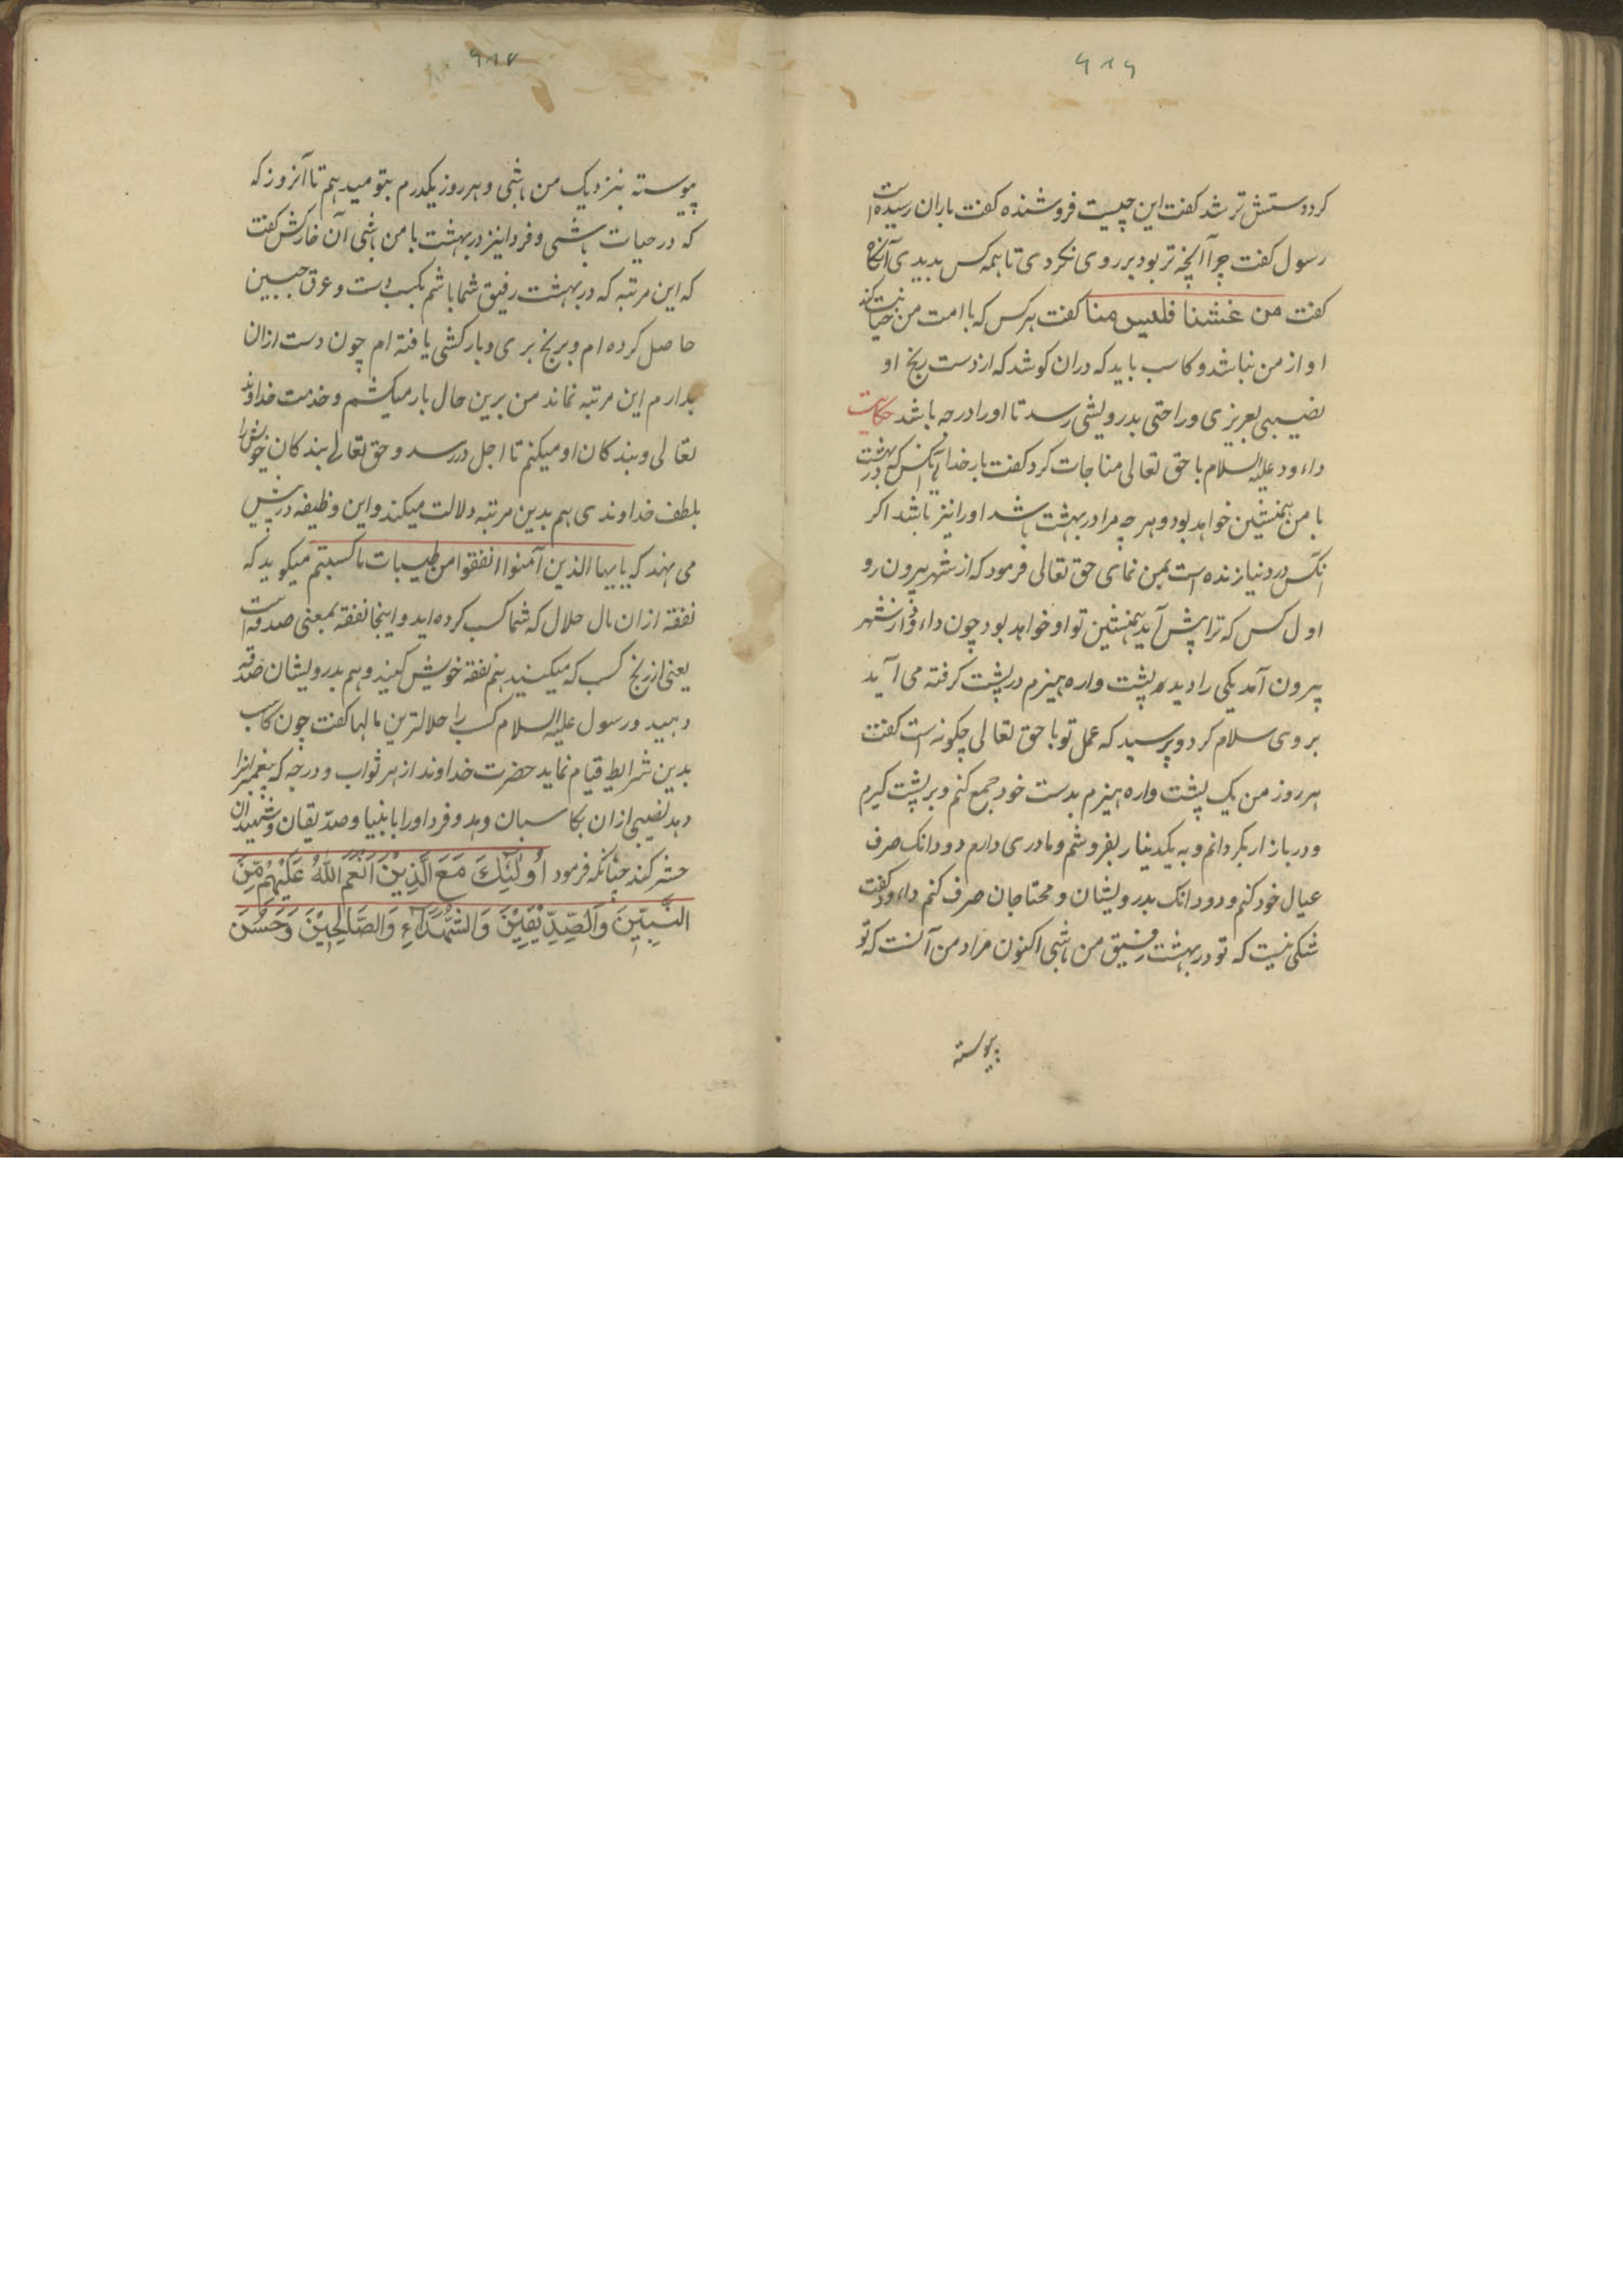 ۶۱۶
کرد دستش تر شد کفت این چیست فروشنده کفت باران رسیده است
رسول کفت چرا آنچه تر بود بر روی نکردی تا همه کس بدیدی آنکاه
کفت من غشنا فلیس منا کفت هر کس که با امت من خیانت کند
او از من نباشد و کاسب باید که دران کوشد که از دست رنج او
نصیبی بعزیزی و راحتی بدرویشی رسد تا او را درجه باشد حکایت
داءود علیه السلام با حق تعالی مناجات کرد کفت بار خدایا آنکس که در بهشت
با من همنشین خواهد بود و هر چه مرا در بهشت باشد او را نیز باشد اکر
آنکس در دنیا زنده است بمن نمای حق تعالی فرمود که از شهر بیرون رو
اول کس که ترا پیش آید همنشین تو او خواهد بود چون داءود از شهر
بیرون آمد یکی را دید که پشت واره هیزم در پشت کرفته می آید
بر وی سلام کرد و پرسید که عمل تو با حق تعالی چکونه است کفت
هر روز من یک پشت واره هیزم بدست خود جمع کنم و بر پشت کیرم
و در بازار بکردانم و به یکدینار بفروشم و مادری دارم دو دانک صرف
عیال خود کنم و دو دانک بدرویشان و محتاجان صرف کنم داءود کفت
شکی نیست که تو در بهشت رفیق من باشی اکنون مراد من آنست که تو
پیوسته
۶۱۷
پیوسته بنزدیک من باشی و هر روز یکدرم بتو میدهم تا آنروز که
که در حیات باشی و فردا نیز در بهشت با من باشی آن خارکش کفت
که این مرتبه که در بهشت رفیق شما باشم بکسب دست و عرق جبین
حاصل کرده ام و برنج بری و بارکشی یافته ام چون دست ازان
بدارم این مرتبه نماند من برین حال بار میکشم و خدمت خداوند
تعالی و بندکان او میکنم تا اجل در رسد و حق تعالی بندکان خویش را
بلطف خداوندی هم بدین مرتبه دلالت میکند و این وظیفه در پیش
می نهد که یا ایها الذین آمنوا انفقوا من طیبات ما کسبتم میکوید که
نفقه ازان مال حلال که شما کسب کرده اید و اینجا نفقه بمعنی صدقه است
یعنی از رنج کسب که میکنید هم نفقه خویش کنید و هم بدرویشان صدقه
دهید و رسول علیه السلام کسب را حلالترین مالها کفت چون کاسب
بدین شرایط قیام نماید حضرت خداوند از هر ثواب و درجه که پیغمبرانرا
دهد نصیبی ازان بکاسبان دهد و فردا او را با انبیا و صدیقان و شهیدان
حشر کند چنانکه فرمود اُولٰئِکَ مَعَ الَّذِیْنَ اَنْعَمَ اللّٰهُ عَلَیْهِمْ مِّنَ
النَّبِیّٖنَ وَالصِّدِّیْقِیْنَ وَالشُّهَدَآءِ وَالصَّالِحِیْنَ وَحَسُنَ